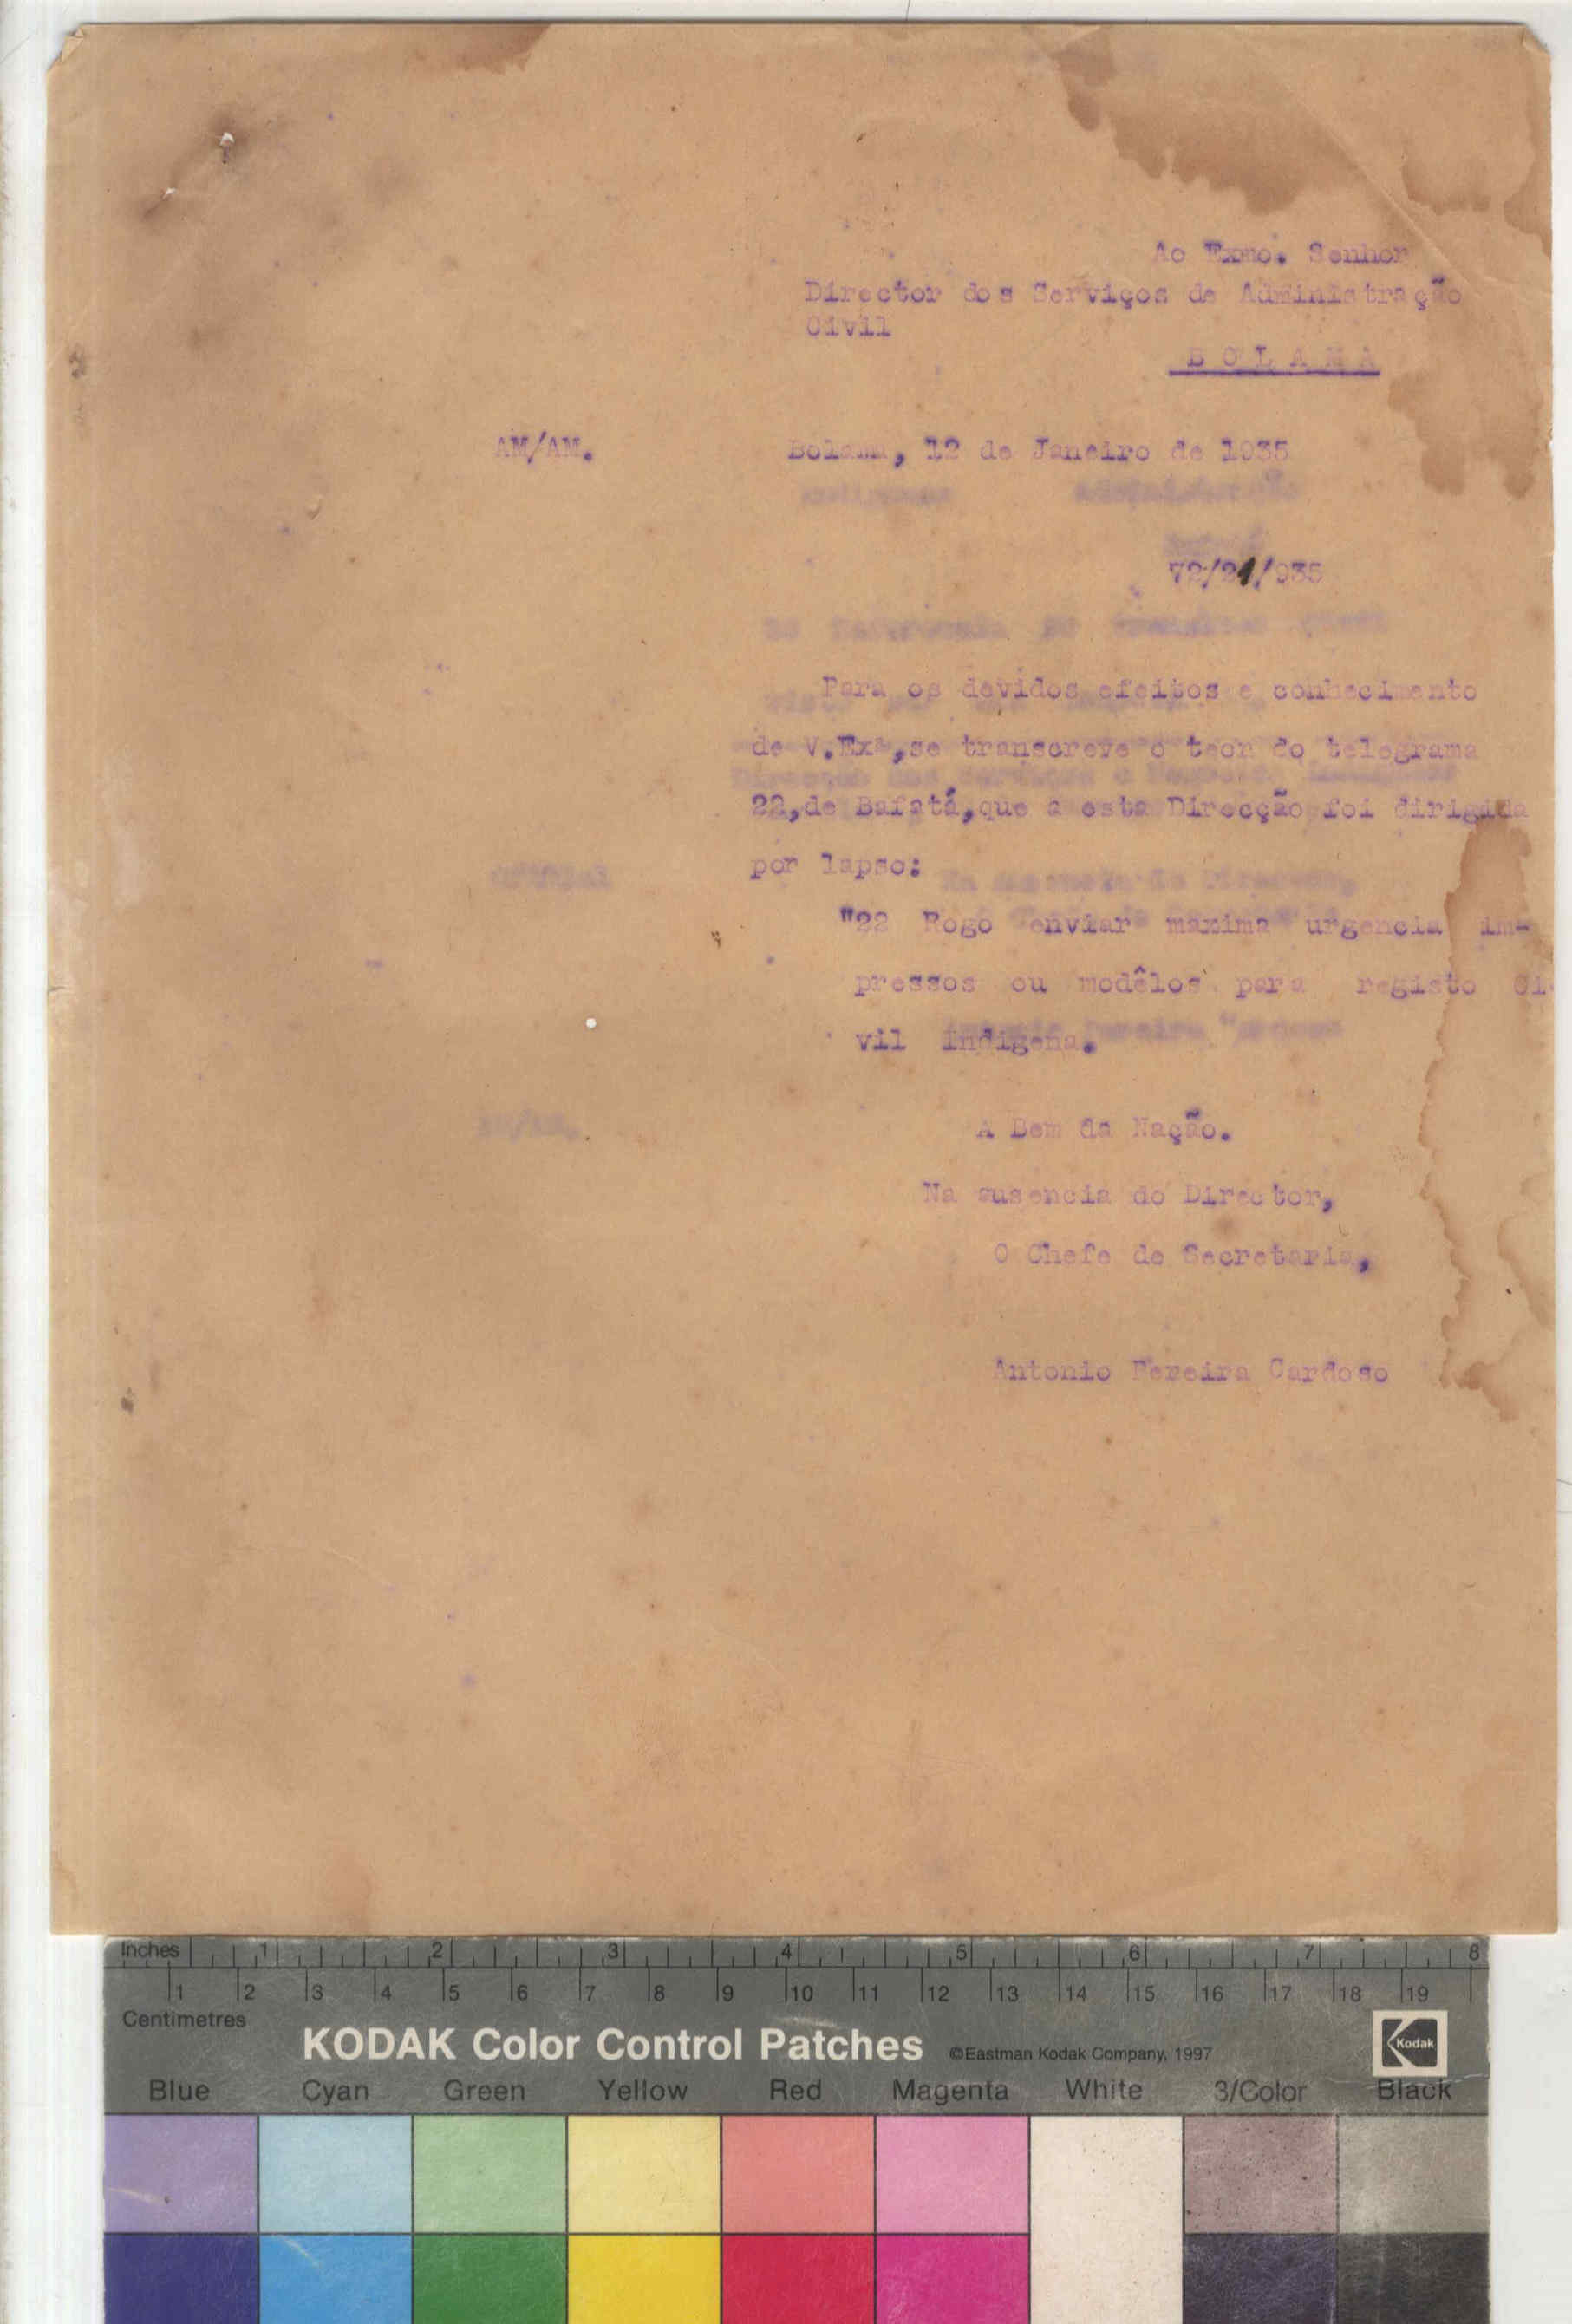 Ao Exmo. Senhor
Director dos Serviços de Administração
Civil
B O L A M A
AM/AM.
Bolama, 12 de Janeiro de 1935
72/21/935
Para os devidos efeitos e conhecimento
de V.Exª,se transcreve o teor do telegrama
22,de Bafatá,que a esta Direcção foi dirigida
por lapso:
"22 Rogo enviar maxima urgencia im-
pressos ou modêlos para registo ci-
vil indigena.
A Bem da Nação.
Na ausencia do Director,
O Chefe de Secretaria,
Antonio Pereira Cardoso
Inches 1 2 3 4 5 6 7 8
1 2 3 4 5 6 7 8 9 10 11 12 13 14 15 16 17 18 19
Centimetres
KODAK Color Control Patches ©Eastman Kodak Company, 1997 Kodak
Blue Cyan Green Yellow Red Magenta White 3/Color Black